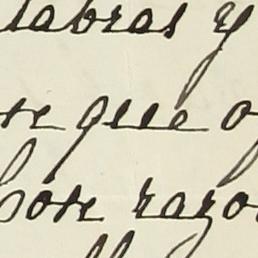 labras y
te que o
bote razo